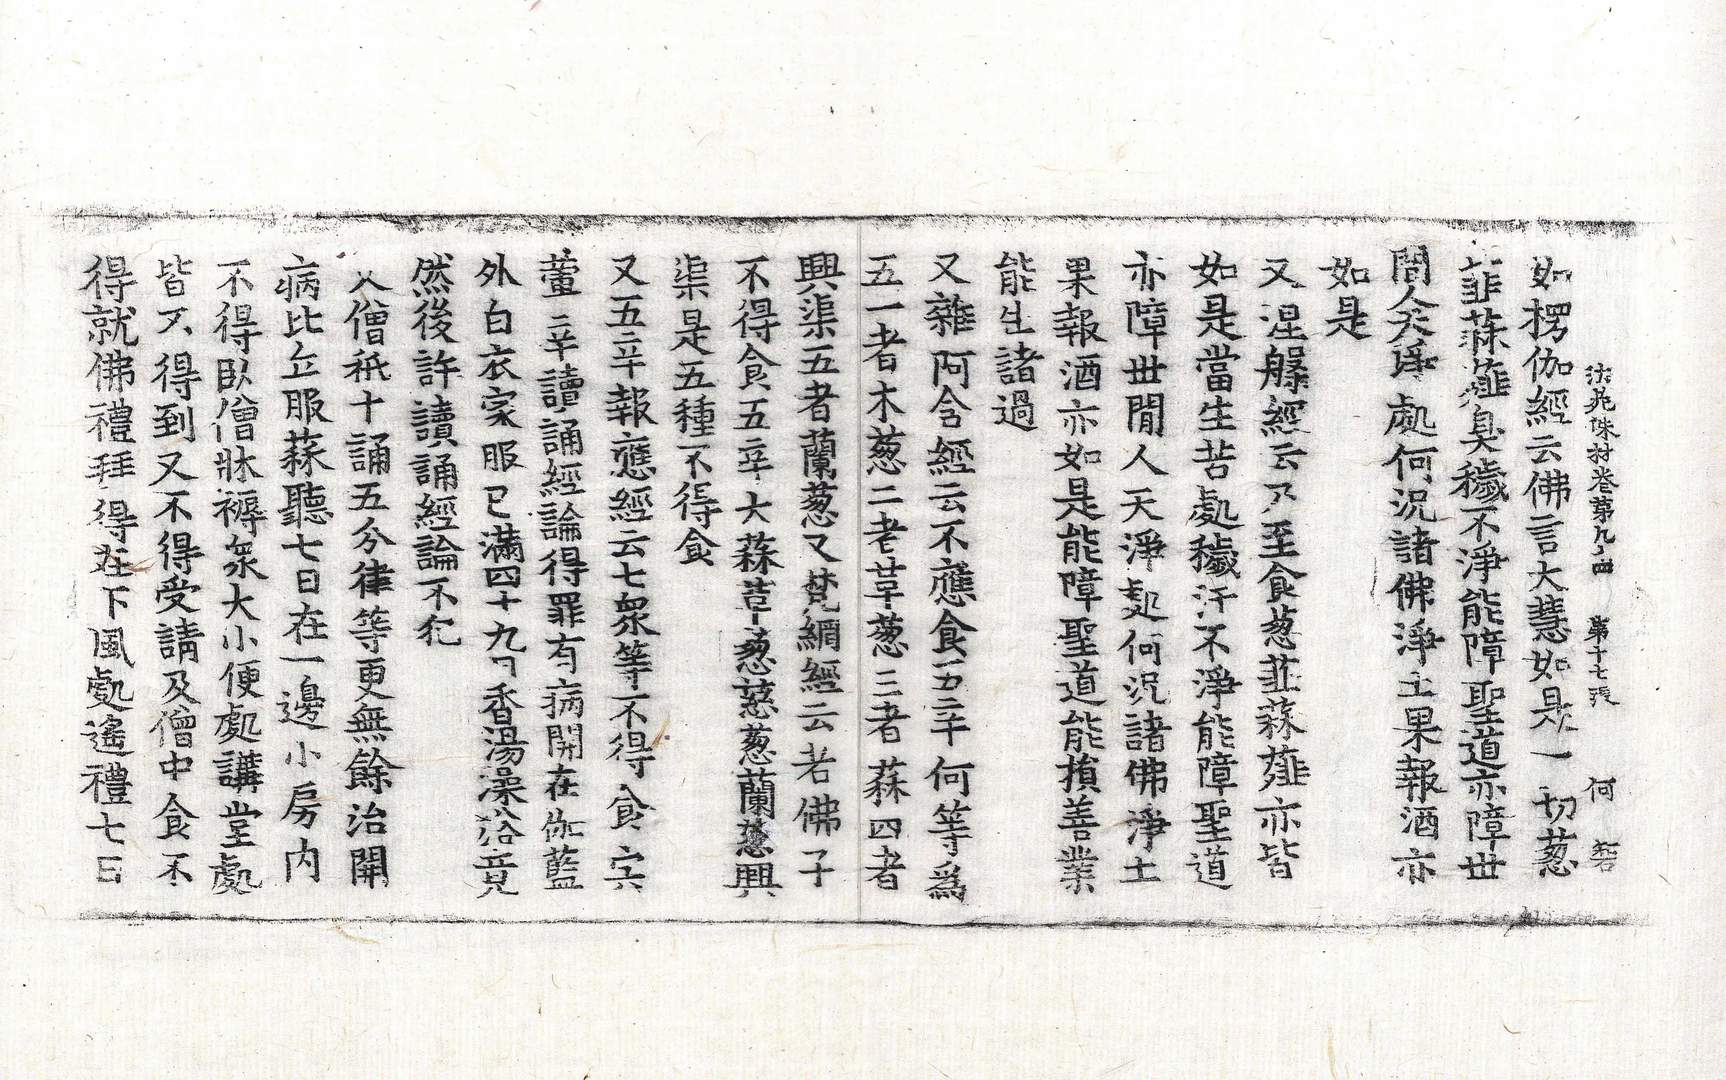 法苑珠林卷第九十四 第十七張 何
如楞伽經云佛言大慧如是一切葱
韮蒜薤臭穢不淨能障聖道亦障世
間人天淨處何況諸佛淨土果報酒亦
如是
又涅槃經云乃至食葱韮蒜薤亦皆
如是當生苦處穢汙不淨能障聖道
亦障世閒人天淨處何況諸佛淨土
果報酒亦如是能障聖道能損善業
能生諸過
又雜阿含經云不應食五辛何等爲
五一者木葱二者革葱三者蒜四者
興渠五者蘭葱又梵網經云若佛子
不得食五辛大蒜革葱慈葱蘭葱興
渠是五種不得食
又五辛報應經云七衆等不得食宍
葷辛讀誦經論得罪有病開在伽藍
外白衣家服已滿四十九日香湯澡浴竟
然後許讀誦經論不犯
又僧祇十誦五分律等更無餘治開
病比丘服蒜聽七日在一邊小房内
不得臥僧牀褥衆大小便處講堂處
皆不得到又不得受請及僧中食不
得就佛禮拜得在下風處遙禮七日